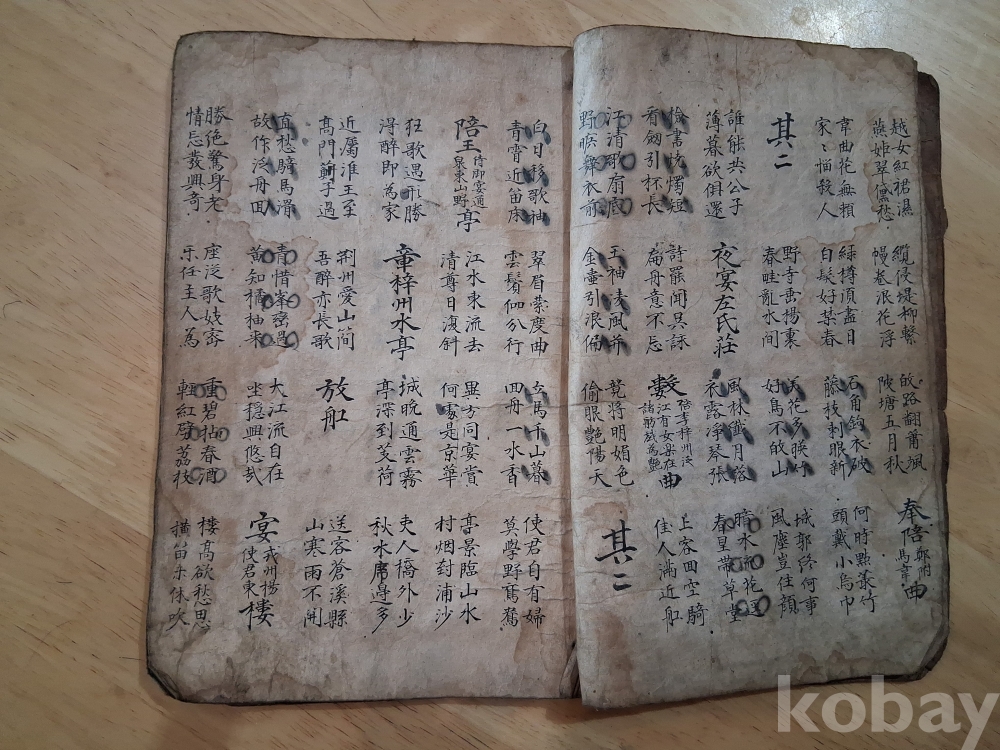 越女紅裙濕
燕姬翠黛愁
纜侵堤柳繫
幔卷浪花浮
皈路翻蕭颯
陂塘五月秋
奉陪鄭駙馬韋曲
韋曲花無賴
家〻惱殺人
綠樽須盡日
白髮好禁春
石角鉤衣破
藤枝刺眼新
何時點叢竹
頭戴小烏巾
其二
野寺垂楊裏
春畦亂水間
美花多映竹
好鳥不皈山
城郭終何事
風塵豈住顔
誰能共公子
薄暮欲俱還
夜宴左氏莊
風林纖月落
衣露淨琴張
暗水流花逕
春星帶草堂
檢書燒燭短
看劔引杯長
詩罷聞吳詠
扁舟意不忘
數陪李梓州泛江有女樂在諸舫戱為艶曲
上客回空騎
佳人滿近船
江清歌扇底
野曠舞衣前
玉袖凌風并
金壷引浪偏
竞將明媚色
偷眼艶陽天
其二
白日移歌袖
青霄近笛床
翠眉縈度曲
雲鬢儼分行
立馬千山暮
回舟一水香
使君自有婦
莫學野鴛鴦
陪王侍御宴通泉東山野亭
江水東流去
清尊日復斜
異方同宴賞
何處是京華
亭景臨山水
村烟封浦沙
狂歌遇形勝
淂醉即為家
章梓州水亭
城晚通雲霧
亭深到芰荷
吏人橋外少
秋水席邊多
近屬淮王至
髙門薊子過
荆州愛山簡
吾醉亦長歌
放船
送客蒼溪縣
山寒雨不開
直愁騎馬滑
故作泛舟回
青惜峯巒過
黃知橘柚來
大江流自在
坐穩興悠哉
宴戎州楊使君東樓
勝絕驚身老
情忘發興奇
座泛歌妓密
乐任主人為
重碧拈春酒
輕紅擘荔枝
樓高欲愁思
橫笛未休吹
kobay